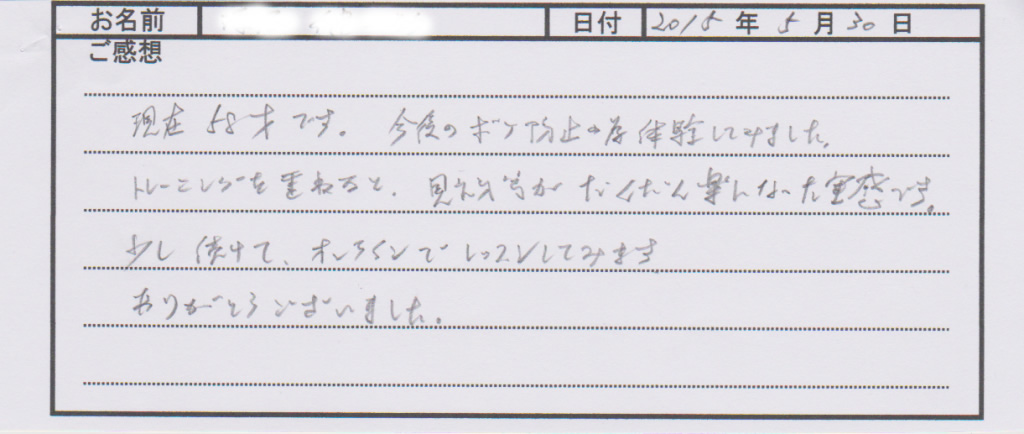 お名前 日付 2015年5月30日
ご感想
現在58才です。今後のボケ防止の為体験してみました。
トレーニングを重ねると、見える字がだんだん楽になった実感です。
少し続けて、オンラインでレッスンしてみます
ありがとうございました。